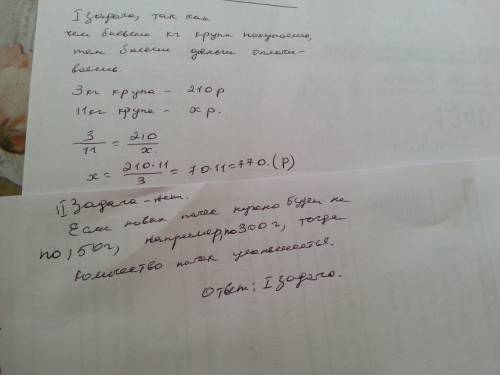 I задача, так как
чем больше кг крупы покупаешь,
тем больше деньги оплачи-
ваешь.
3 кг крупа - 210 р
11 кг крупа - x р.
3/11 = 210/x
x = 210·11/3 = 70·11 = 770. (р)
II Задача - нет.
Если новых пачек нужно будет не
по 150г, например, по 300г, тогда
количество пачек уменьшается.
Ответ: I задача.